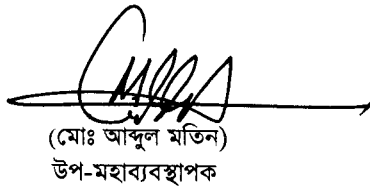 (মোঃ আব্দুল মতিন)
উপ-মহাব্যবস্থাপক